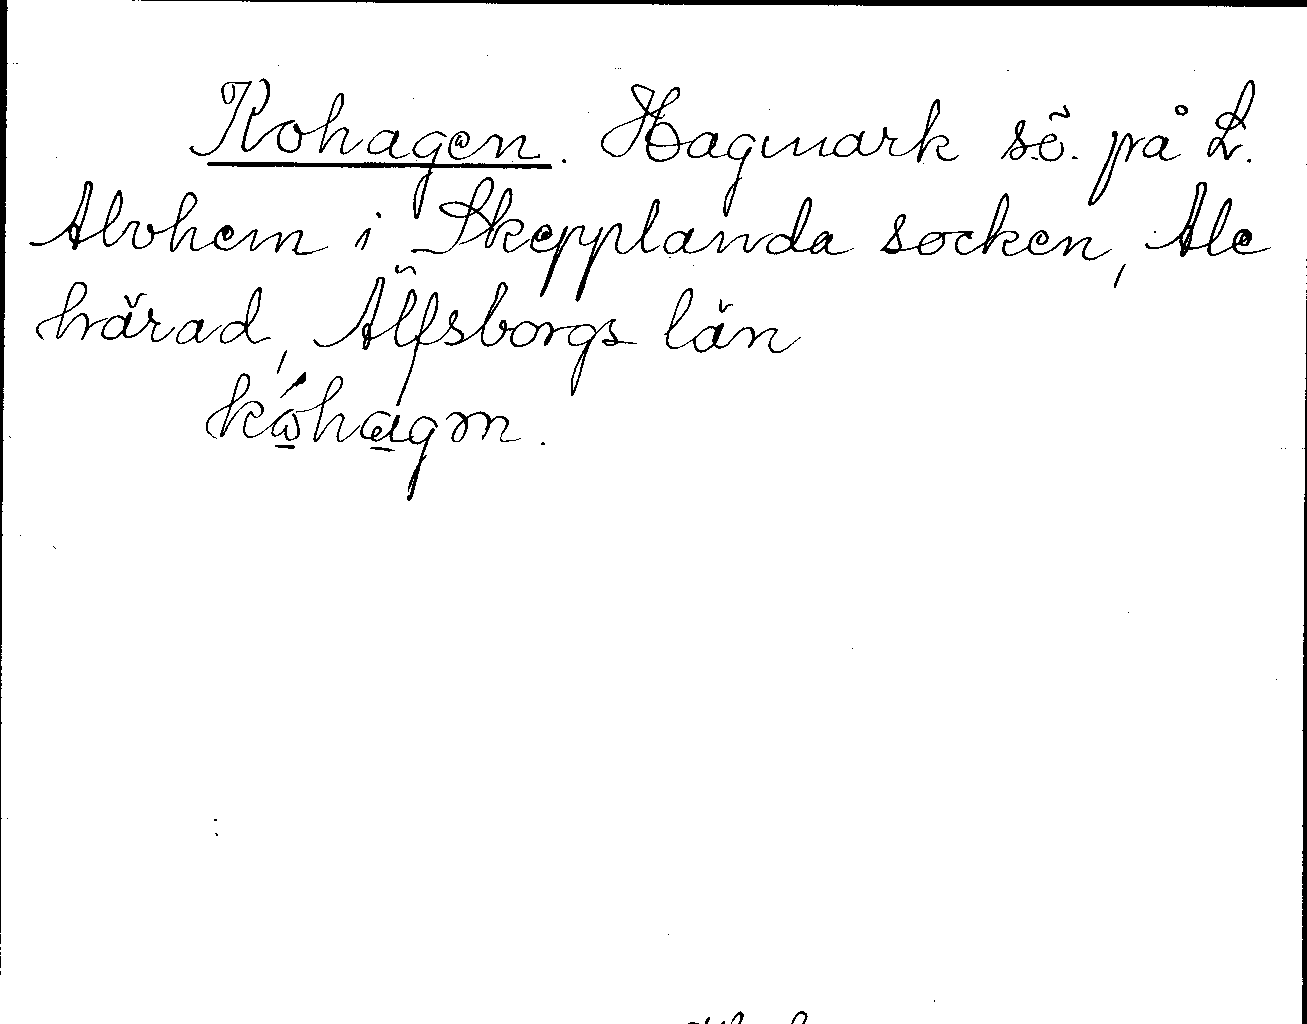 Kohagen. Hagmark sö. på L.
Alvhem i Skepplanda socken, Ale
härad, Älfsborgs län
kóhagm.